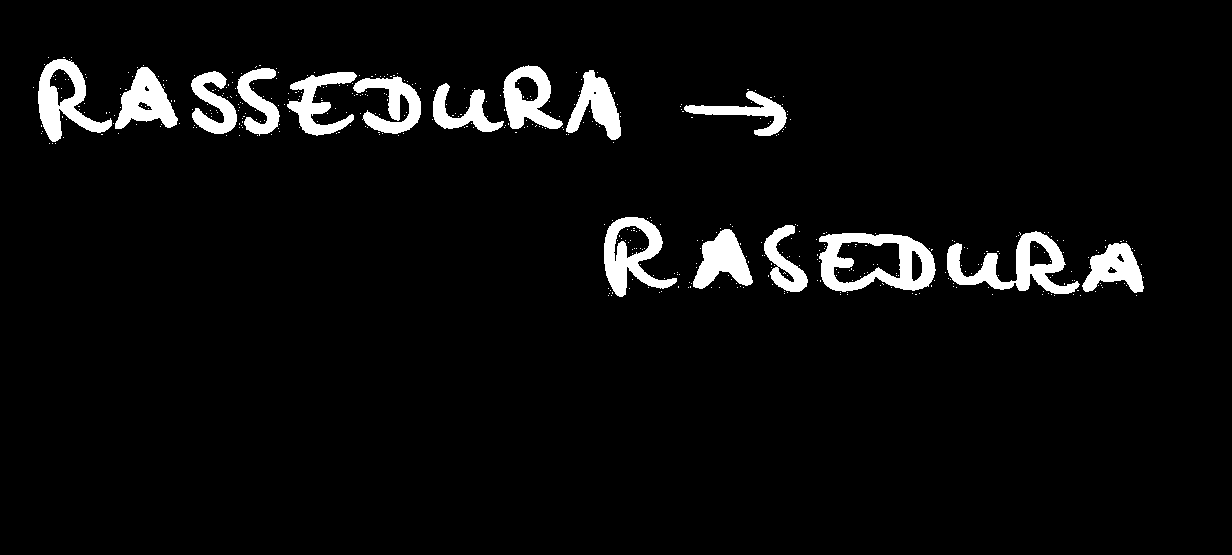 RASSEDURA →
RASEDURA